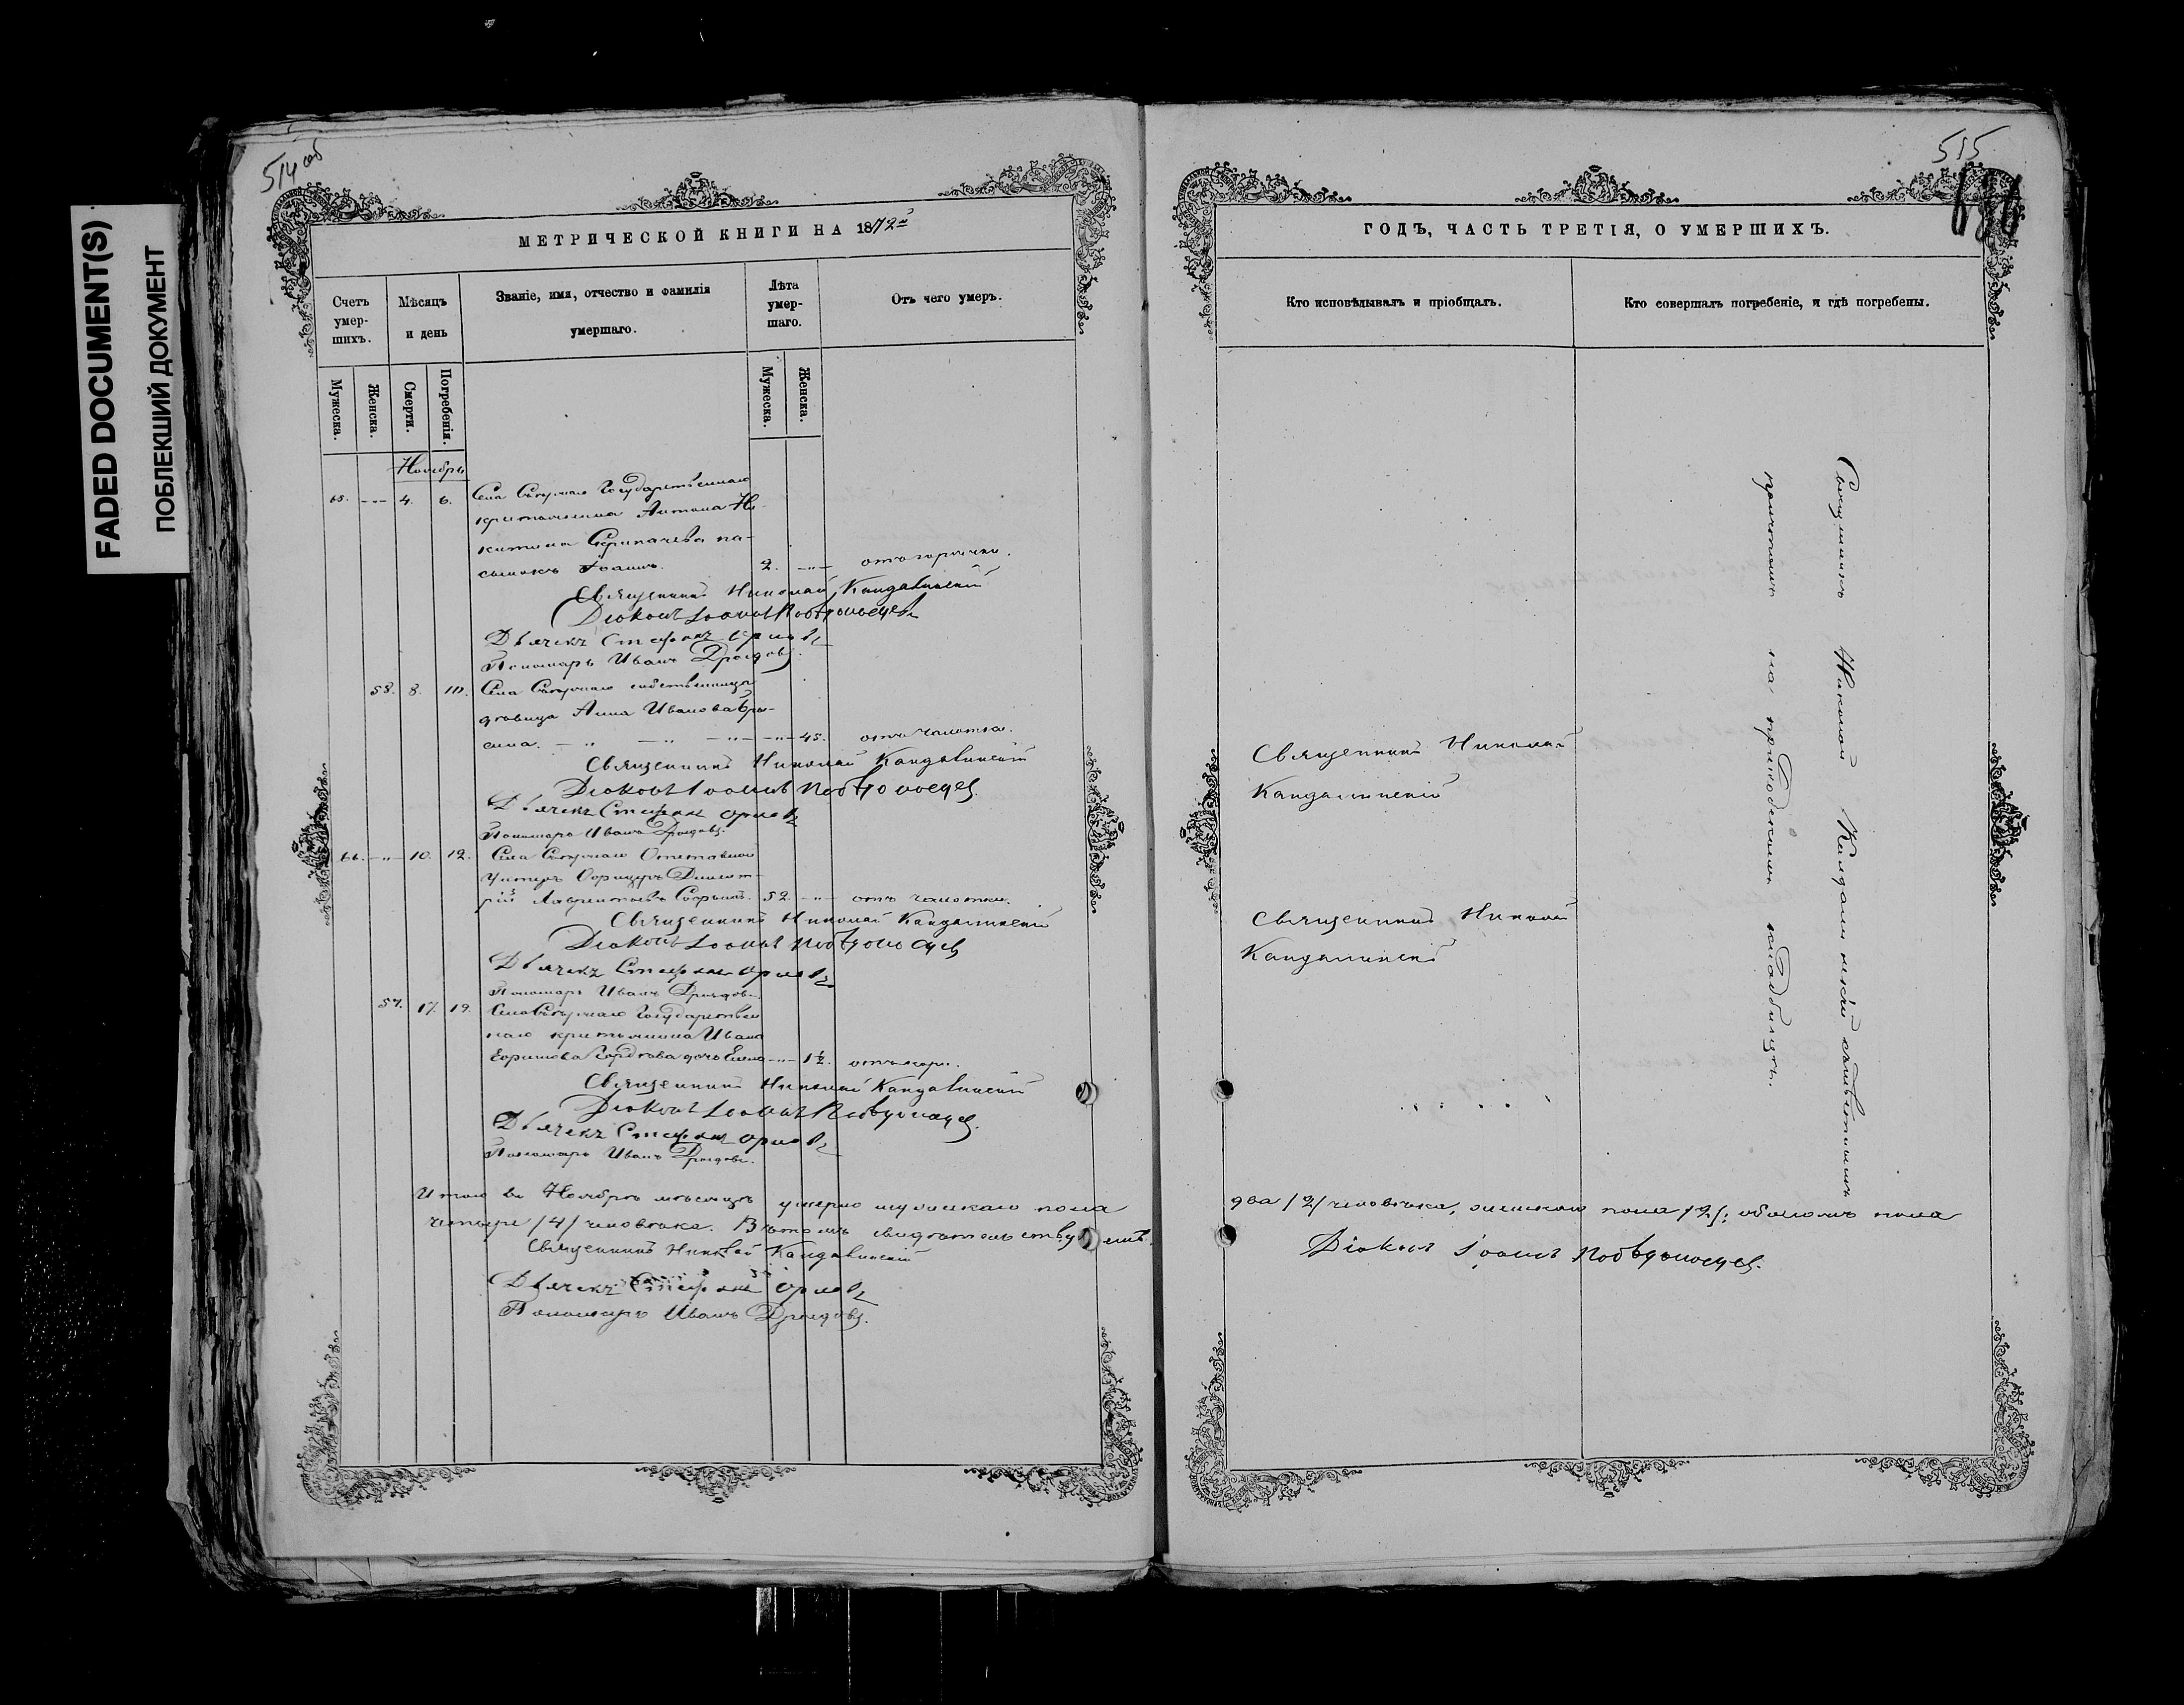 FADED DOCUMENT(S)
ПОБЛЕКШИЙ ДОКУМЕНТ
514 об
МЕТРИЧЕСКОЙ КНИГИ НА 1872й
Счетъ умер-шихъ.
Мѣсяцъ и день
Званіе, имя, отчество и фамилія
умершаго.
Лѣта умер-шаго.
Отъ чего умеръ.
Мужеска.
Женска.
Смерти.
Погребенія.
Мужеска.
Женска.
Ноябрь
65. -"- 4. 6. Села Государственнаго
крестьянина Антона Ни-
китина па-
сынокъ Іоаннъ. 2. -"- отъ горячки.
Священникъ Николай Кандалинскій
Діаконъ Іоаннъ Побѣдоносцевъ
Дьячекъ Стефанъ Орловъ
Пономарь Иванъ Дроздовъ.
58. 8. 10. Села собственница
вдовица Анна Иванова
сина. -"- -"- -"- -"- 45. отъ чахотки.
Священникъ Николай Кандалинскій
Діаконъ Іоаннъ Побѣдоносцевъ.
Дьячекъ Стефанъ Орловъ
Пономарь Иванъ Дроздовъ.
66. -"- 10. 12. Села Отставной
Унтеръ Офицеръ Димит-
рій Лаврентьевъ 52. -"- отъ чахотки.
Священникъ Николай Кандалинскій
Діаконъ Іоаннъ Побѣдоносцевъ
Дьячекъ Стефанъ Орловъ
Пономарь Иванъ Дроздовъ.
17. 19. Села Государствен
наго крестьянина Ивана
Ефимова дочь Елена -"- 1½. отъ
Священникъ Николай Кандалинскій
Діаконъ Іоаннъ Побѣдоносцевъ.
Дьячекъ Стефанъ Орловъ
Пономарь Иванъ Дроздовъ.
Итого въ Ноябрѣ мѣсяцѣ умерло мужескаго пола
четыре /4/ человѣка. Въ томъ свидѣтельствуемъ.
Священникъ Николай Кандалинскій
Дьячекъ Стефанъ Орловъ
Пономарь Иванъ Дроздовъ.
515
ГОДЪ, ЧАСТЬ ТРЕТІЯ, О УМЕРШИХЪ.
Кто исповѣдывалъ и пріобщалъ.
Кто совершалъ погребеніе, и гдѣ погребены.
Священникъ Николай
Кандалинскій
Священникъ Николай
Кандалинскій
Священникъ Николай Кандалинскій съ
причтомъ на приходскомъ кладбищѣ.
два /2/ человѣка, женскаго пола /2/; обоего пола
Діаконъ Іоаннъ Побѣдоносцевъ.